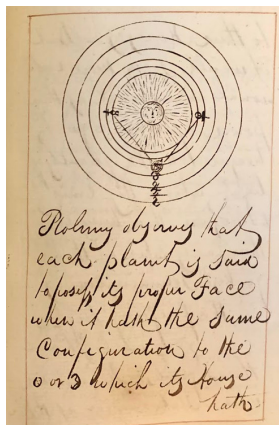 Ptolemy observes that
each planet is Said
to posess its proper Face
when it hath the Same
Configuration to the
☉ or ☽ which its House
hath